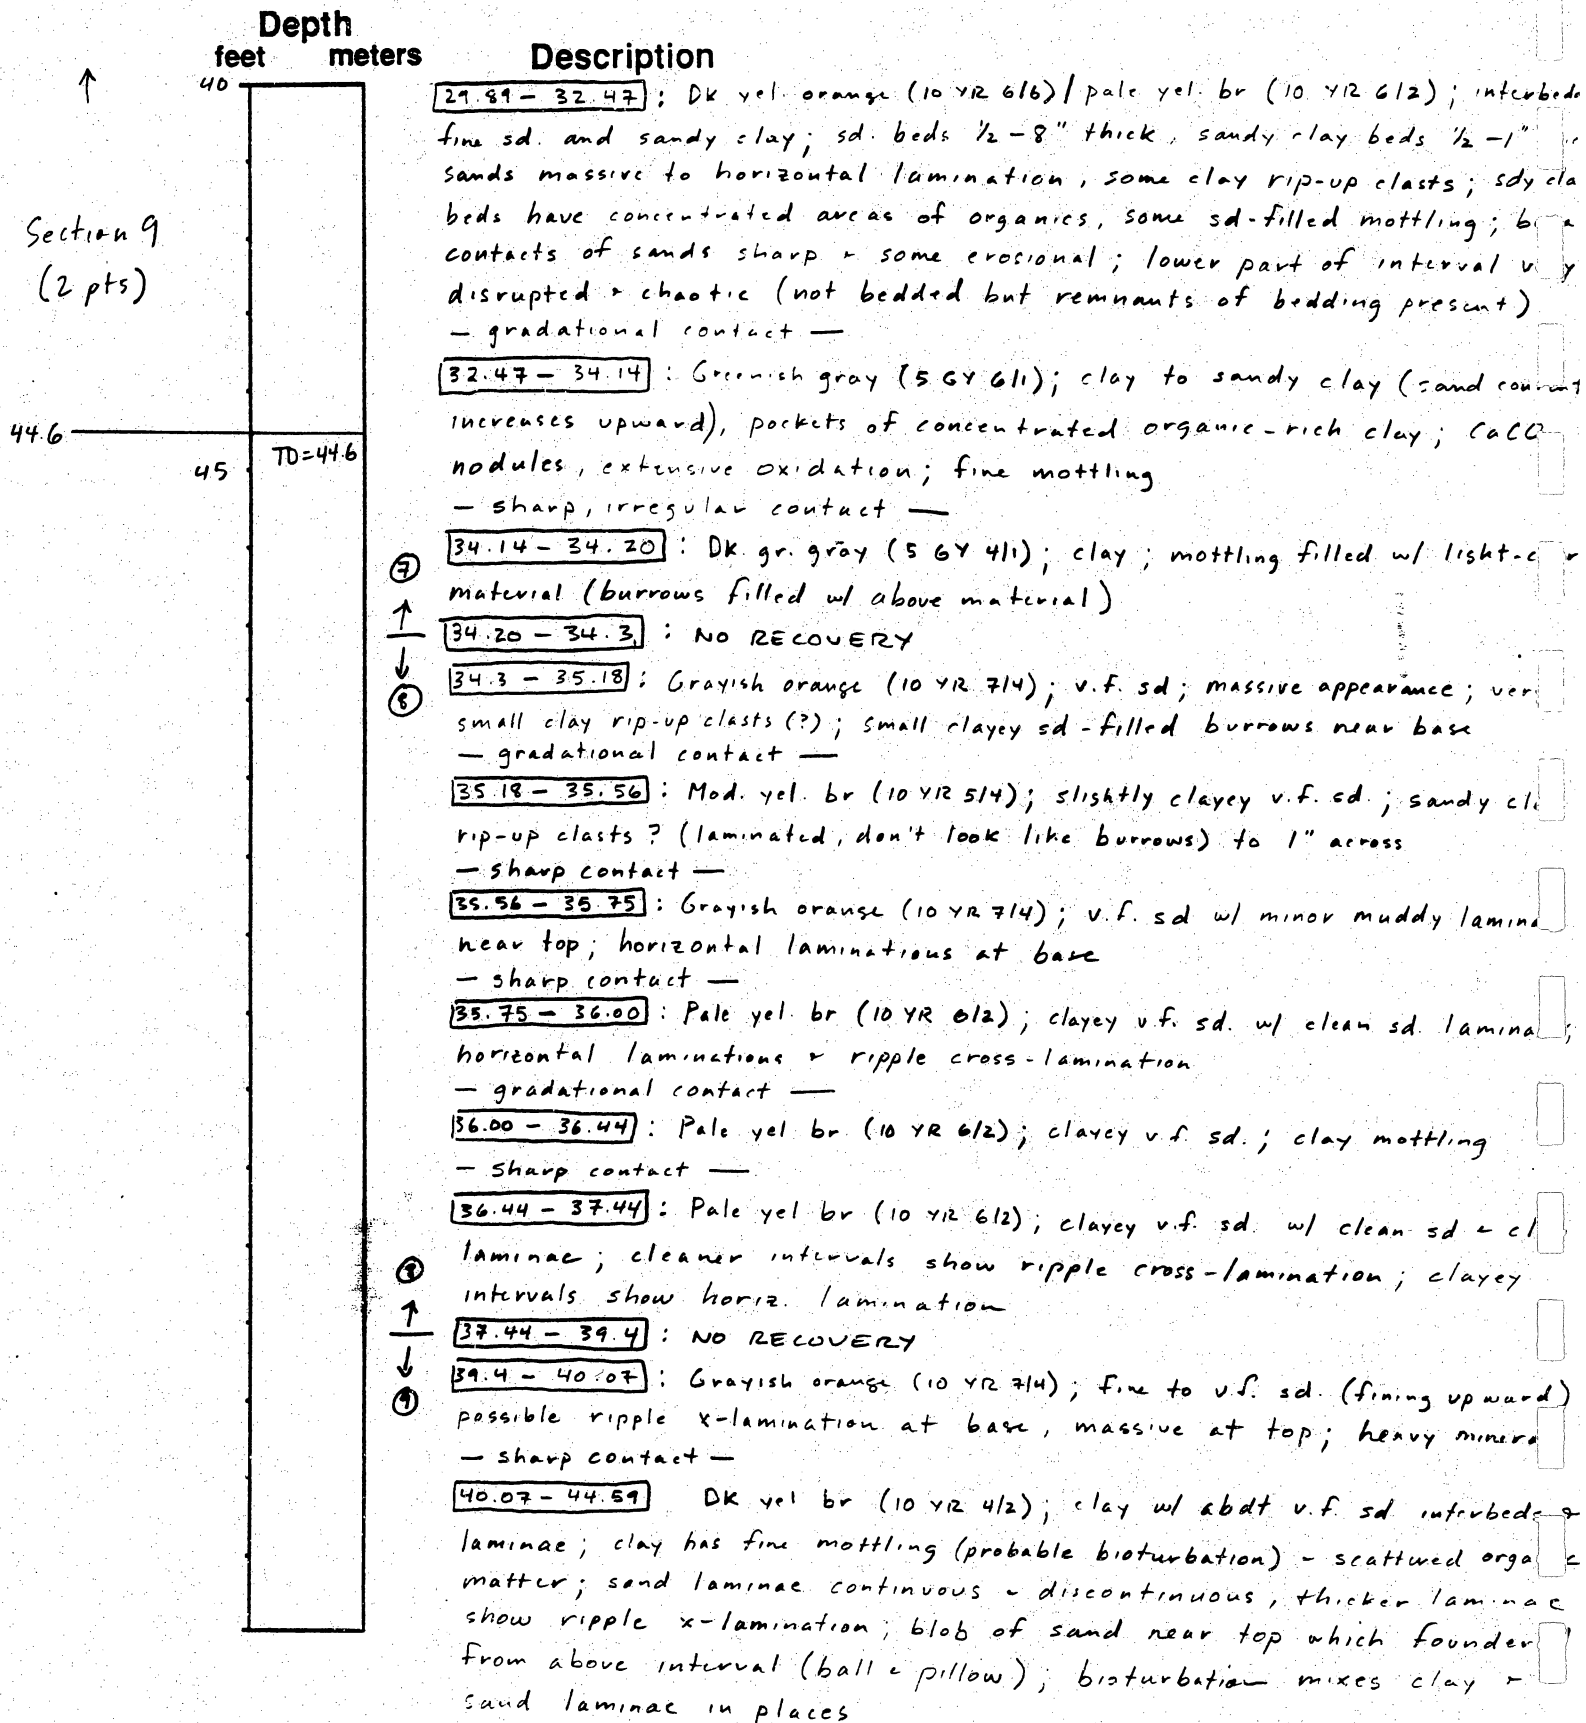 Depth
feet meters Description
↑ 40
29.89 - 32.47 : Dk yel. orange (10 YR 6/6) / pale yel. br (10 YR 6/2) ; interbed
fine sd. and sandy clay ; sd. beds 1/2 - 8" thick, sandy clay beds 1/2 - 1"
sands massive to horizontal lamination, some clay rip-up clasts ; sdy cla
Section 9
beds have concentrated areas of organics, some sd-filled mottling ;
(2 pts)
contacts of sands sharp + some erosional ; lower part of interval
disrupted + chaotic (not bedded but remnants of bedding present)
— gradational contact —
32.47 - 34.14 : Greenish gray (5 GY 6/1) ; clay to sandy clay (sand
increases upward), pockets of concentrated organic-rich clay ; CaCO
44.6
TD=44.6
45
nodules, extensive oxidation ; fine mottling
— sharp, irregular contact —
34.14 - 34.20 : Dk. gr. gray (5 GY 4/1) ; clay ; mottling filled w/ light-
⑦
material (burrows filled w/ above material)
↑
34.20 - 34.3 : NO RECOVERY
↓
34.3 - 35.18 : Grayish orange (10 YR 7/4) ; v.f. sd ; massive appearance ; ver
⑧
small clay rip-up clasts (?) ; small clayey sd-filled burrows near base
— gradational contact —
35.18 - 35.56 : Mod. yel. br (10 YR 5/4) ; slightly clayey v.f. sd. ; sandy cl
rip-up clasts ? (laminated, don't look like burrows) to 1" across
— sharp contact —
35.56 - 35.75 : Grayish orange (10 YR 7/4) ; v.f. sd w/ minor muddy lamina
near top ; horizontal laminations at base
— sharp contact —
35.75 - 36.00 : Pale yel. br (10 YR 6/2) ; clayey v.f. sd. w/ clean sd. lamina ;
horizontal laminations + ripple cross-lamination
— gradational contact —
36.00 - 36.44 : Pale yel br (10 YR 6/2) ; clayey v.f. sd. ; clay mottling
— sharp contact —
36.44 - 37.44 : Pale yel br (10 YR 6/2) ; clayey v.f. sd. w/ clean sd + cl
laminae ; cleaner intervals show ripple cross-lamination ; clayey
⑧
intervals show horiz. lamination
↑
37.44 - 39.4 : NO RECOVERY
↓
39.4 - 40.07 : Grayish orange (10 YR 7/4) ; fine to v.f. sd. (fining upward)
⑨
possible ripple x-lamination at base, massive at top ; heavy minera
— sharp contact —
40.07 - 44.59 Dk yel br (10 YR 4/2) ; clay w/ abdt v.f. sd interbeds +
laminae ; clay has fine mottling (probable bioturbation) - scattered
matter ; sand laminae continuous - discontinuous, thicker laminae
show ripple x-lamination ; blob of sand near top which founder
from above interval (ball + pillow) ; bioturbation mixes clay +
sand laminae in places